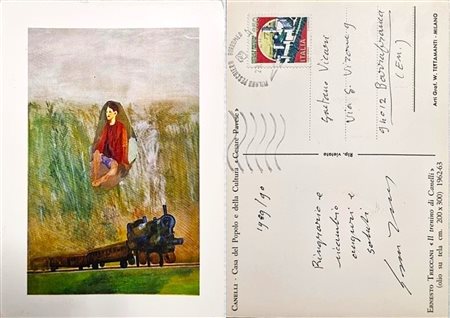 CANELLI - Casa del Popolo e della Cultura « Cesare Pavese »
1989/90
Ringrazio e
ricambio
auguri e
saluti
ERNESTO TRECCANI « Il trenino di Canelli » 1962-63
(olio su tela cm. 200 x 300)
Rip. vietata
Arti Graf. W. TETTAMANTI - MILANO
ITALIA
Gaetano Vicari
Via G. Verone 9
94012 Barrafranca
(En.)